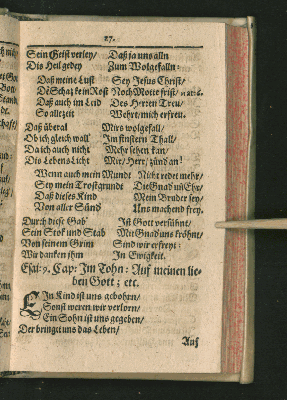 27.
Sein Geist verley/ Daß ja uns alln
Die Heil gedey Zum Wolgefalln:
Daß meine Lust Sey Jesus Christ/
De Schaz kein Rost Noch Motte frist/
Daß auch im Leid Des Herren Treu/
So allzeit Wehrt/mich erfreu.
Daß überal Mirs wolgefall/
Ob ich gleich wall Im finstern Thall/
Da ich auch nicht Mehr sehen kan/
Die Lebens Licht Mir/Herr/zünd an!
Wenn auch mein Mund Nicht redet mehr/
Sey mein Trostgrund Die Gnad un Ehr/
Daß dieses Kind Mein Bruder sey/
Von aller Sünd Uns machend frey.
Durch diese Gab' Ist Gott versühnt/
Sein Stok und Stab Mit Gnad uns kröhnt/
Von seinem Grim Sind wir erfreyt:
Wir danken ihm In Ewigkeit.
Esai: 9. Cap: Im Tohn: Auf meinen lie-
ben Gott; etc.
Ein Kind ist uns gebohrn/
Sonst weren wir verlorn/
Ein Sohn ist uns gegeben/
Der bringet uns das Leben/
Auf